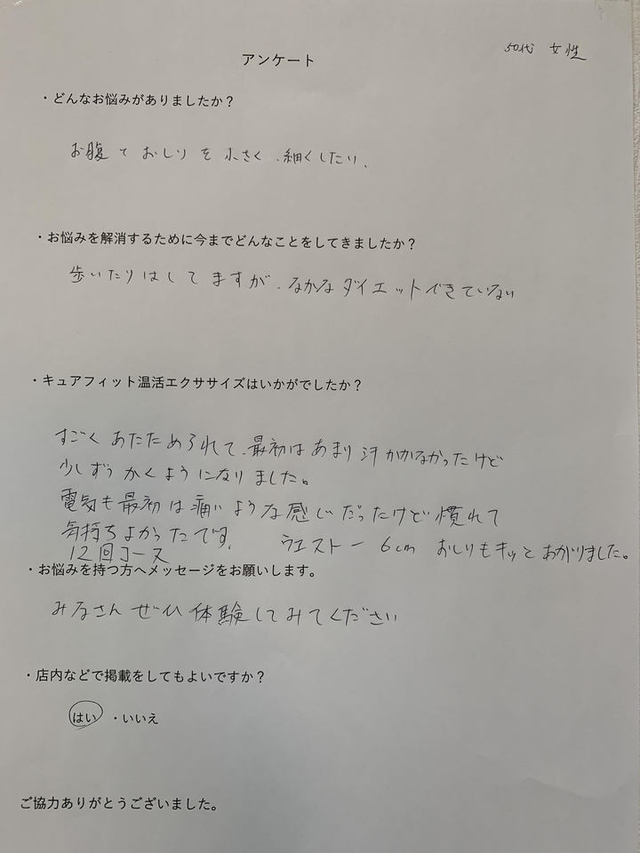 50代 女性
アンケート
・どんなお悩みがありましたか？
お腹 て おしり を 小さく、細くしたい、
・お悩みを解消するために今までどんなことをしてきましたか？
歩いたりはしてますが、なかなダイエットできていない
・キュアフィット温活エクササイズはいかがでしたか？
すごく あたためられて、最初はあまり汗かかなかったけど
少しずつ かくようになりました。
電気も最初は痛いような感じだったけど慣れて
気持ちよかったです。 ウエスト－6cm おしりもキッとあがりました。
12回コース
・お悩みを持つ方へメッセージをお願いします。
みなさん ぜひ 体験してみてください
・店内などで掲載をしてもよいですか？
はい ・いいえ
ご協力ありがとうございました。